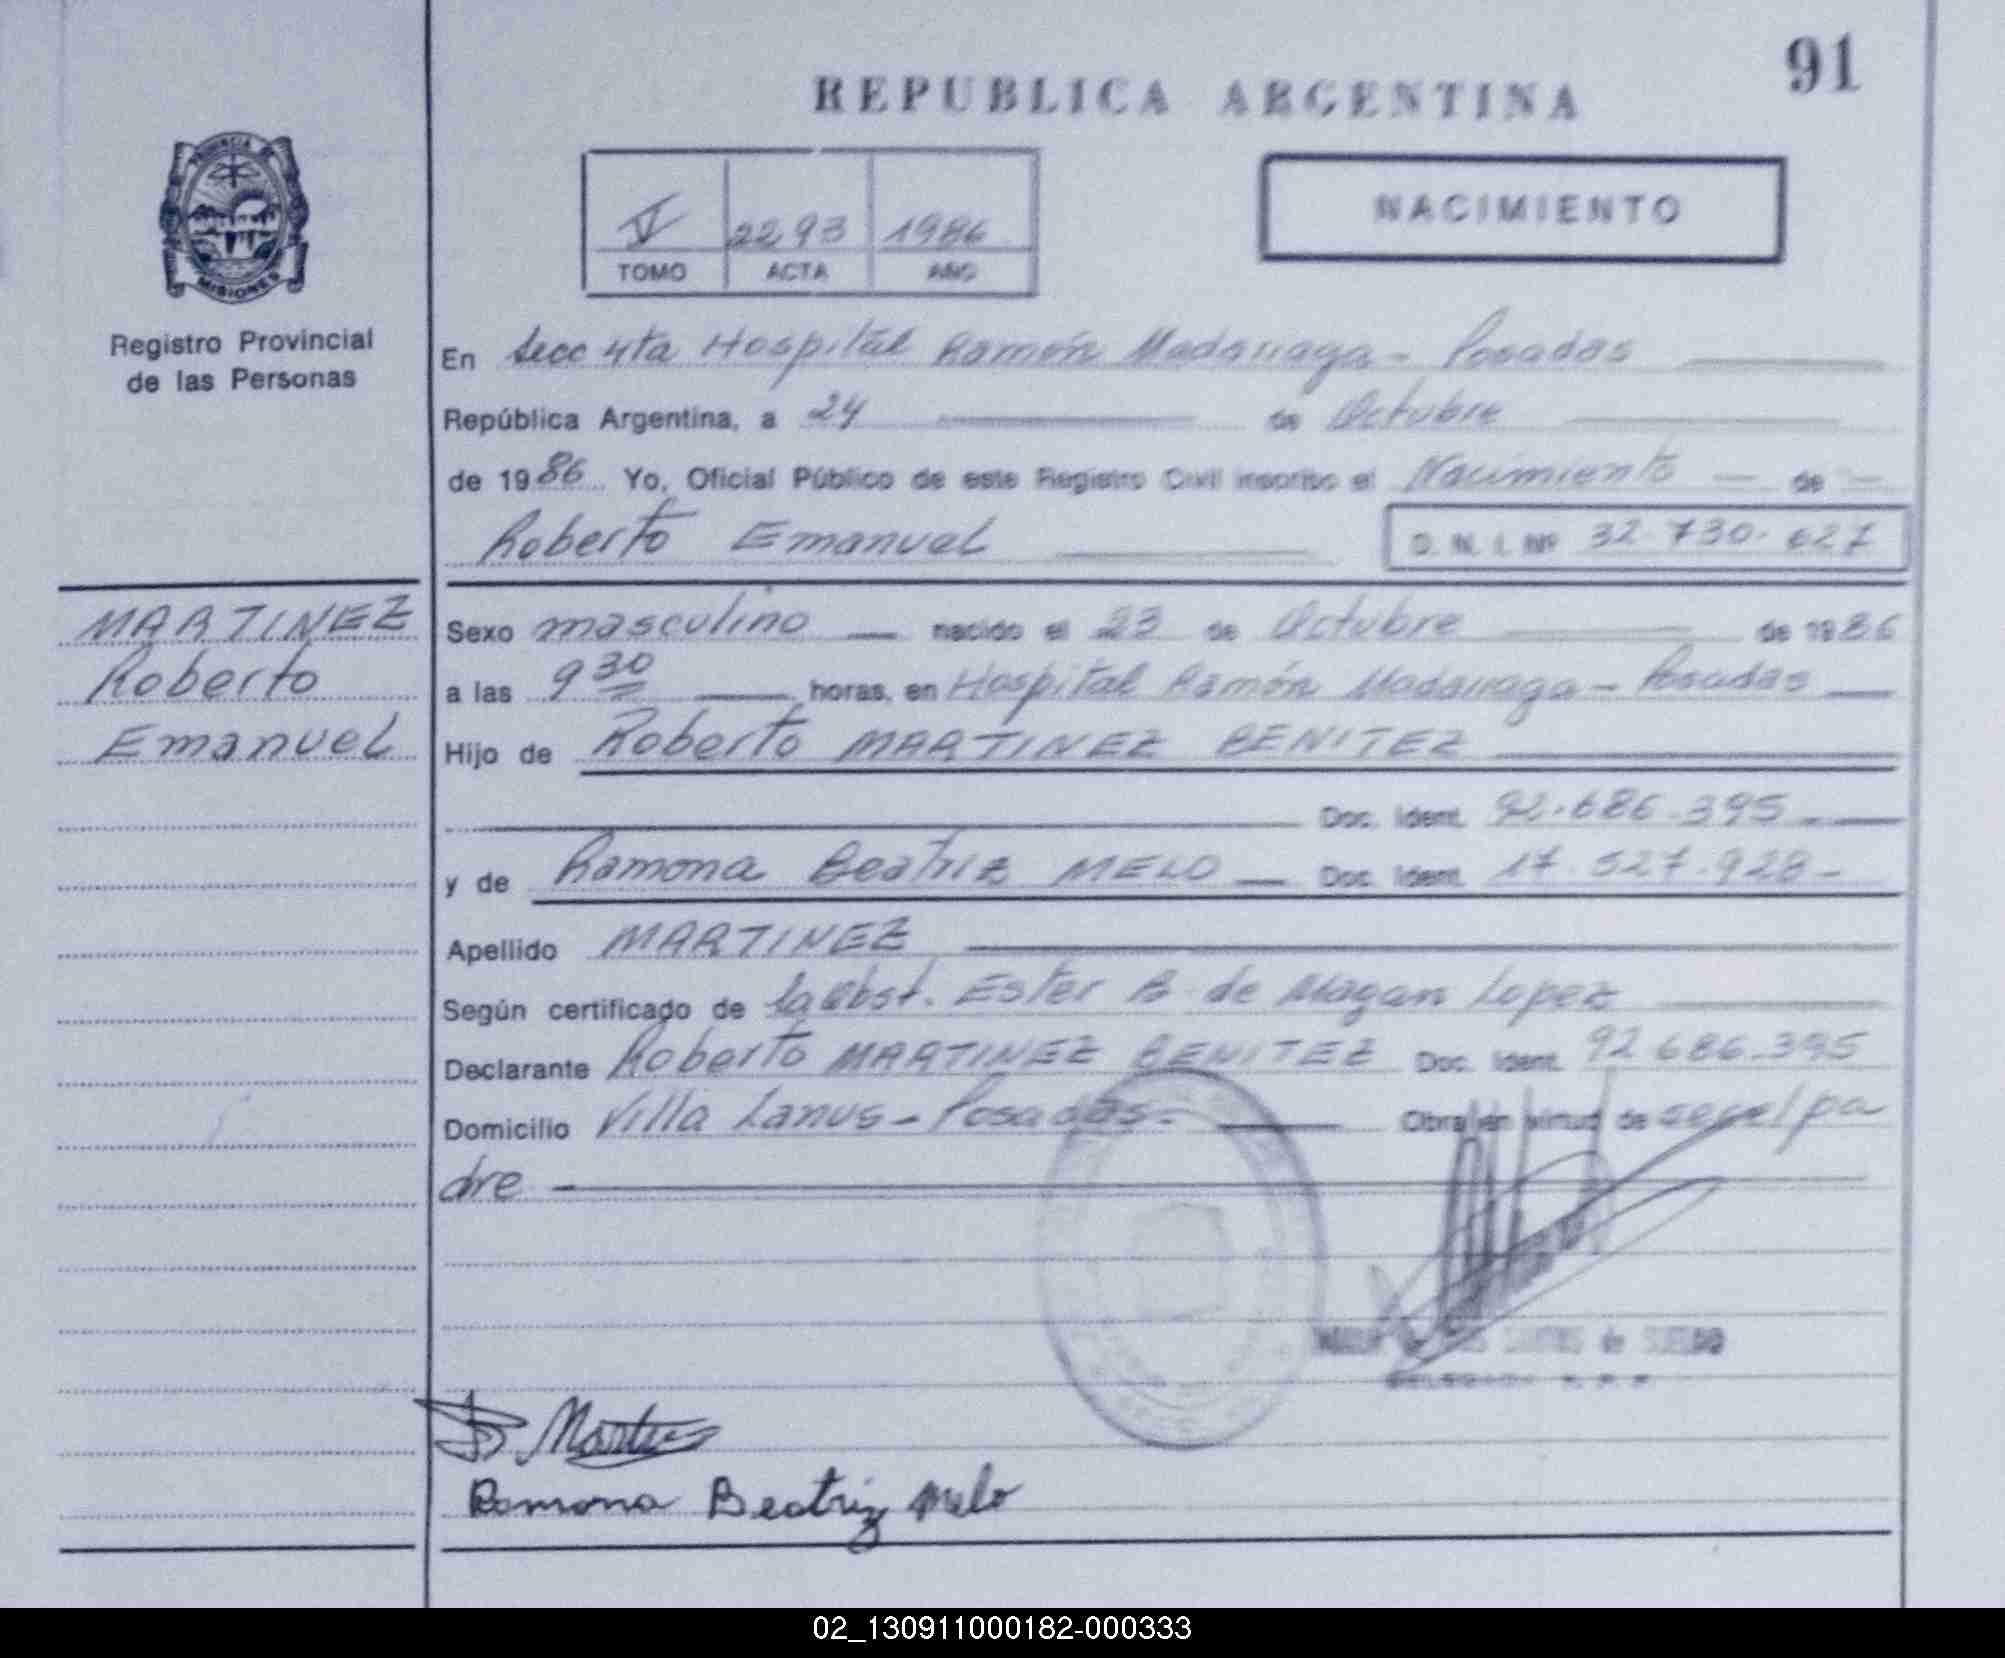 91
REPUBLICA ARGENTINA
PROVINCIA DE
MISIONES
Registro Provincial
de las Personas
V 2293 1986
TOMO ACTA AÑO
NACIMIENTO
En Secc 4ta Hospital Ramón Madariaga - Posadas
República Argentina, a 24 de Octubre
de 1986 Yo, Oficial Público de este Registro Civil inscribo el Nacimiento de
Roberto Emanuel
D. N. I. Nº 32.730.627
MARTINEZ
Roberto
Emanuel
Sexo masculino nacido el 23 de Octubre de 1986
a las 9 30 horas, en Hospital Ramón Madariaga - Posadas
Hijo de Roberto MARTINEZ BENITEZ
Doc. Ident. 92.686.395
y de Ramona Beatriz MELO Doc. Ident. 17.527.928-
Apellido MARTINEZ
Según certificado de la Obst. Ester B. de Magan Lopez
Declarante Roberto MARTINEZ BENITEZ Doc. Ident. 92.686.395
Domicilio Villa Lanus - Posadas - Obra en virtud de ser el pa
dre
SANTOS de
Ramona Beatriz Melo
02_130911000182-000333